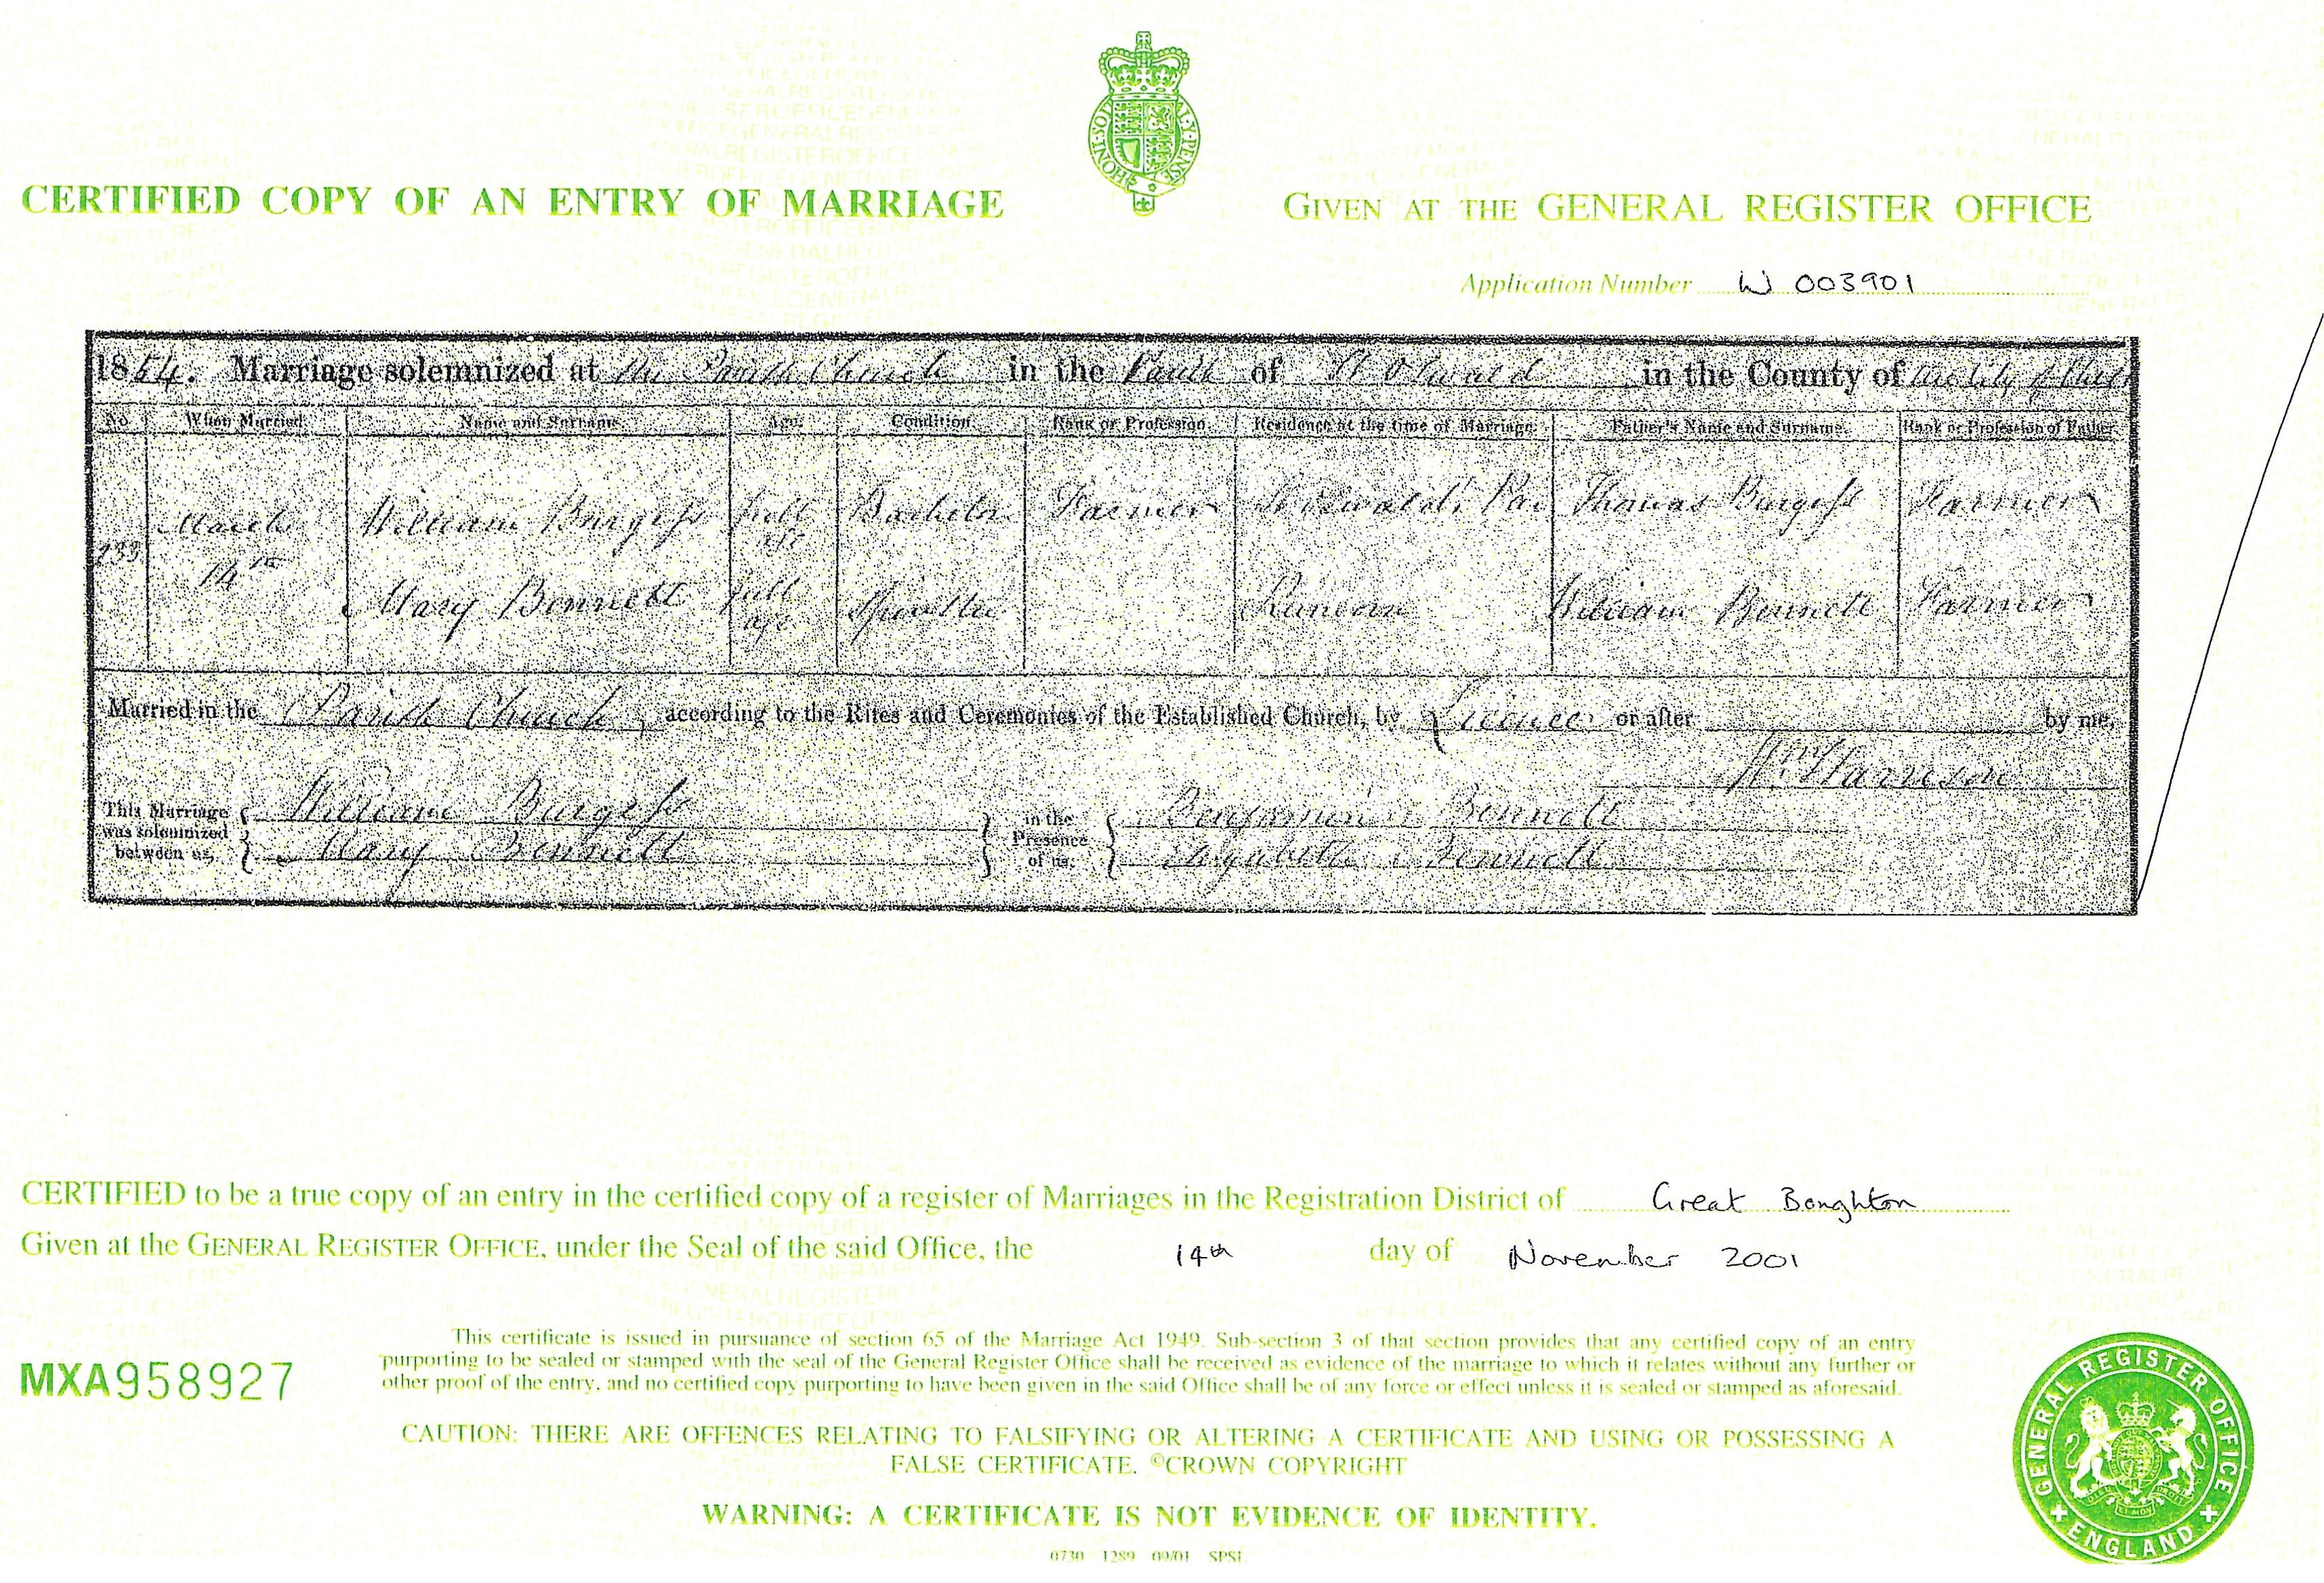 CERTIFIED COPY OF AN ENTRY OF MARRIAGE
GIVEN AT THE GENERAL REGISTER OFFICE
Application Number W 003901
1854. Marriage solemnized at the Parish Church in the Parish of St Oswald in the County of the City of
No. When Married Name and Surname Age Condition Rank or Profession Residence at the time of Marriage Father's Name and Surname Rank or Profession of Father
233 March 14th William Burgess full age Bachelor Farmer St Oswald's Thomas Burgess Farmer
Mary Bennett full age Spinster Runcorn William Bennett Farmer
Married in the Parish Church according to the Rites and Ceremonies of the Established Church, by Licence or after by me,
Wm Harrison
This Marriage was solemnized between us, William Burgess Mary Bennett in the Presence of us, Benjamin Bennett Elizabeth Bennett
CERTIFIED to be a true copy of an entry in the certified copy of a register of Marriages in the Registration District of Great Boughton
Given at the GENERAL REGISTER OFFICE, under the Seal of the said Office, the 14th day of November 2001
This certificate is issued in pursuance of section 65 of the Marriage Act 1949. Sub-section 3 of that section provides that any certified copy of an entry
purporting to be sealed or stamped with the seal of the General Register Office shall be received as evidence of the marriage to which it relates without any further or
other proof of the entry, and no certified copy purporting to have been given in the said Office shall be of any force or effect unless it is sealed or stamped as aforesaid.
MXA958927
CAUTION: THERE ARE OFFENCES RELATING TO FALSIFYING OR ALTERING A CERTIFICATE AND USING OR POSSESSING A
FALSE CERTIFICATE. ©CROWN COPYRIGHT
WARNING: A CERTIFICATE IS NOT EVIDENCE OF IDENTITY.
0730 1289 09/01 SPSL
GENERAL REGISTER OFFICE ENGLAND